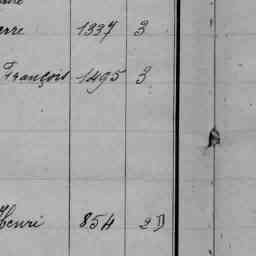 erre 1337 3
François 1495 3
Henri 854 2D